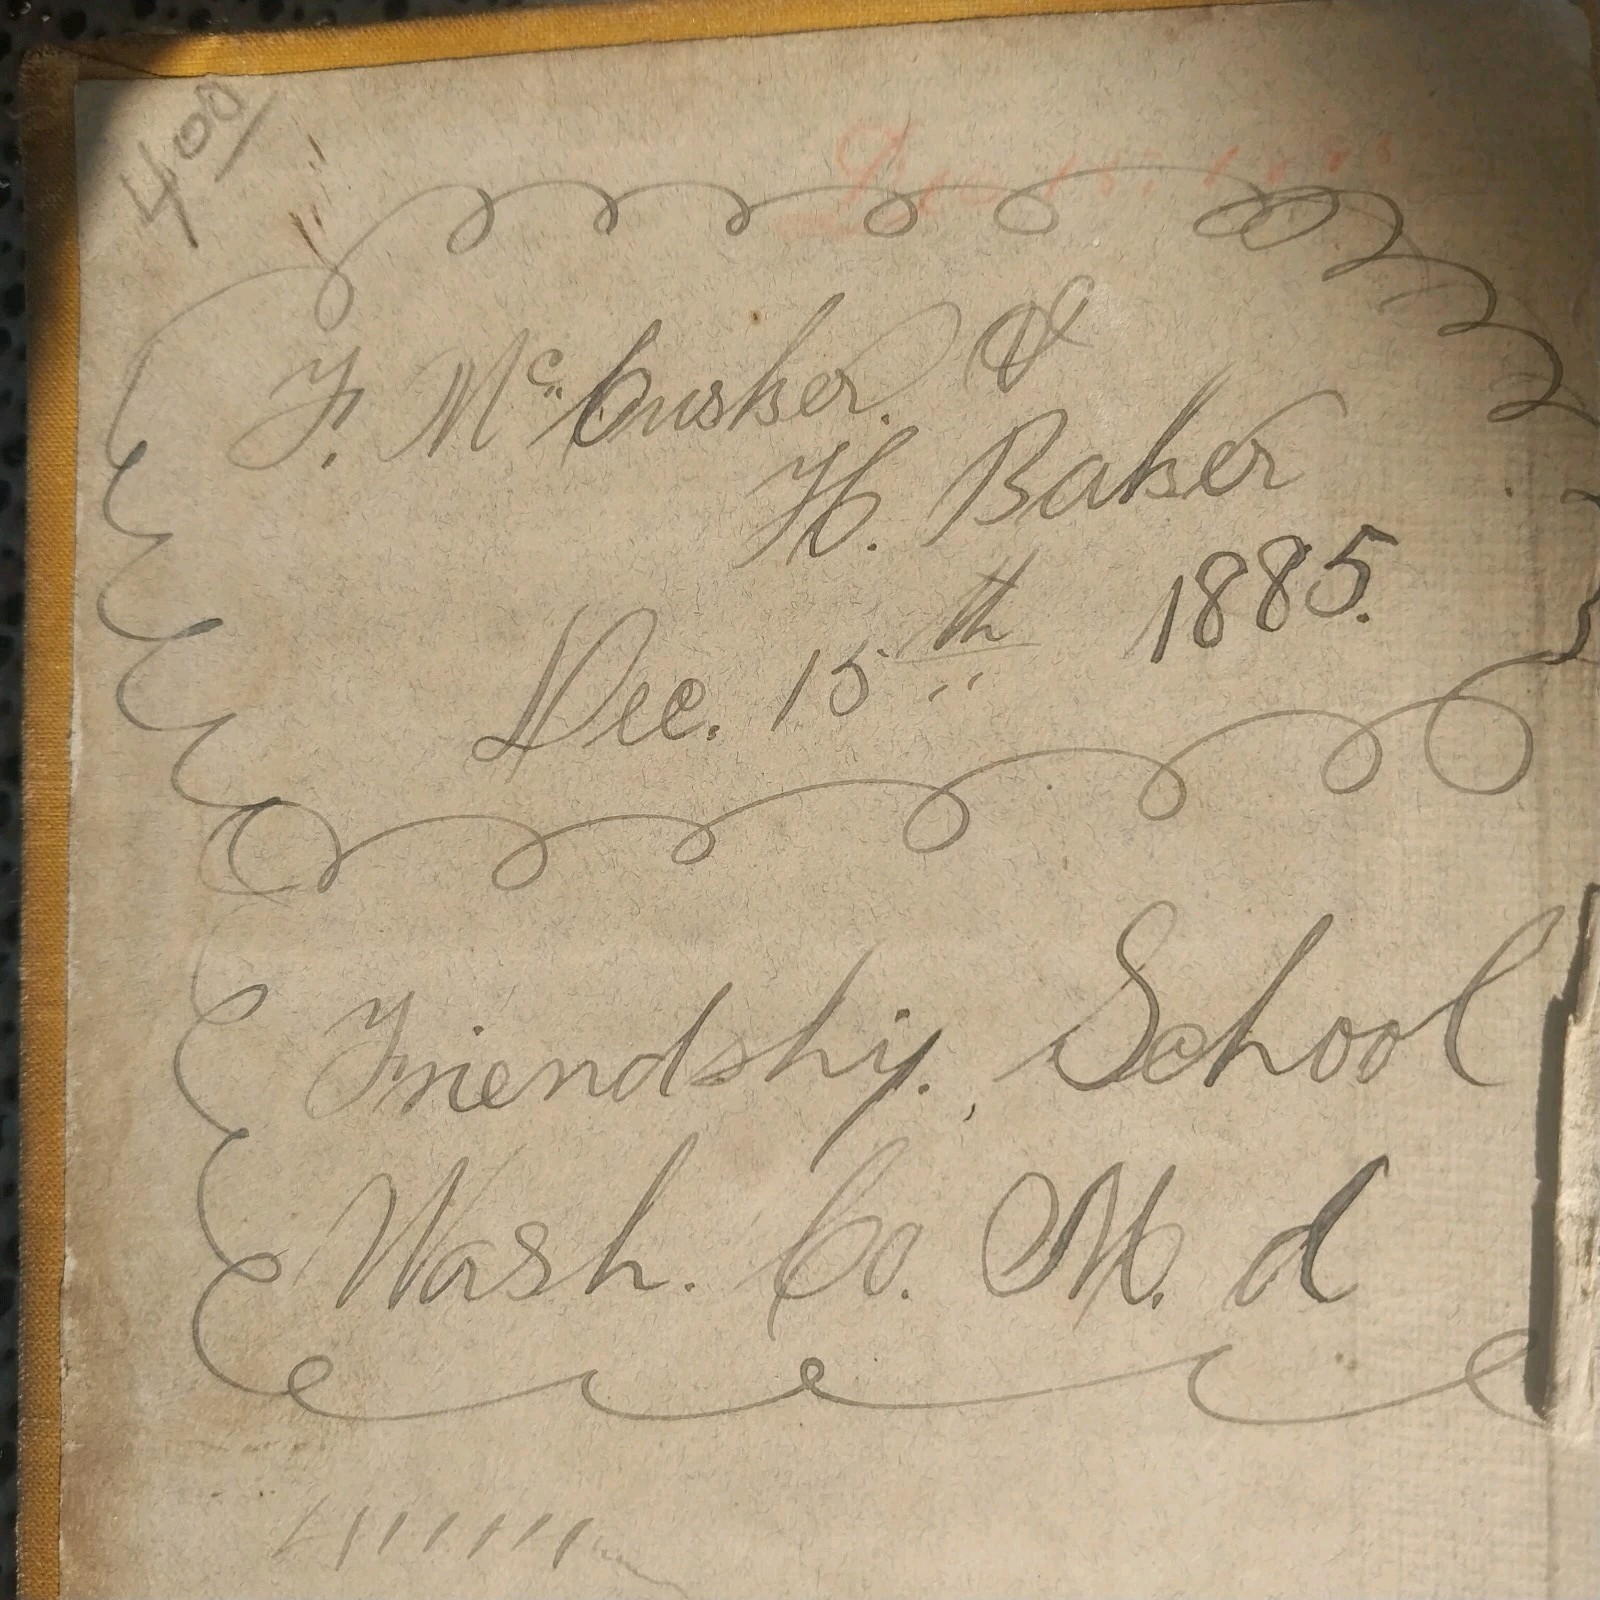 4.00
Dec 15. 1885
F. Mc. Cusker. &
H. Baker
Dec. 15th 1885.
Friendship. School
Wash. Co. M. d